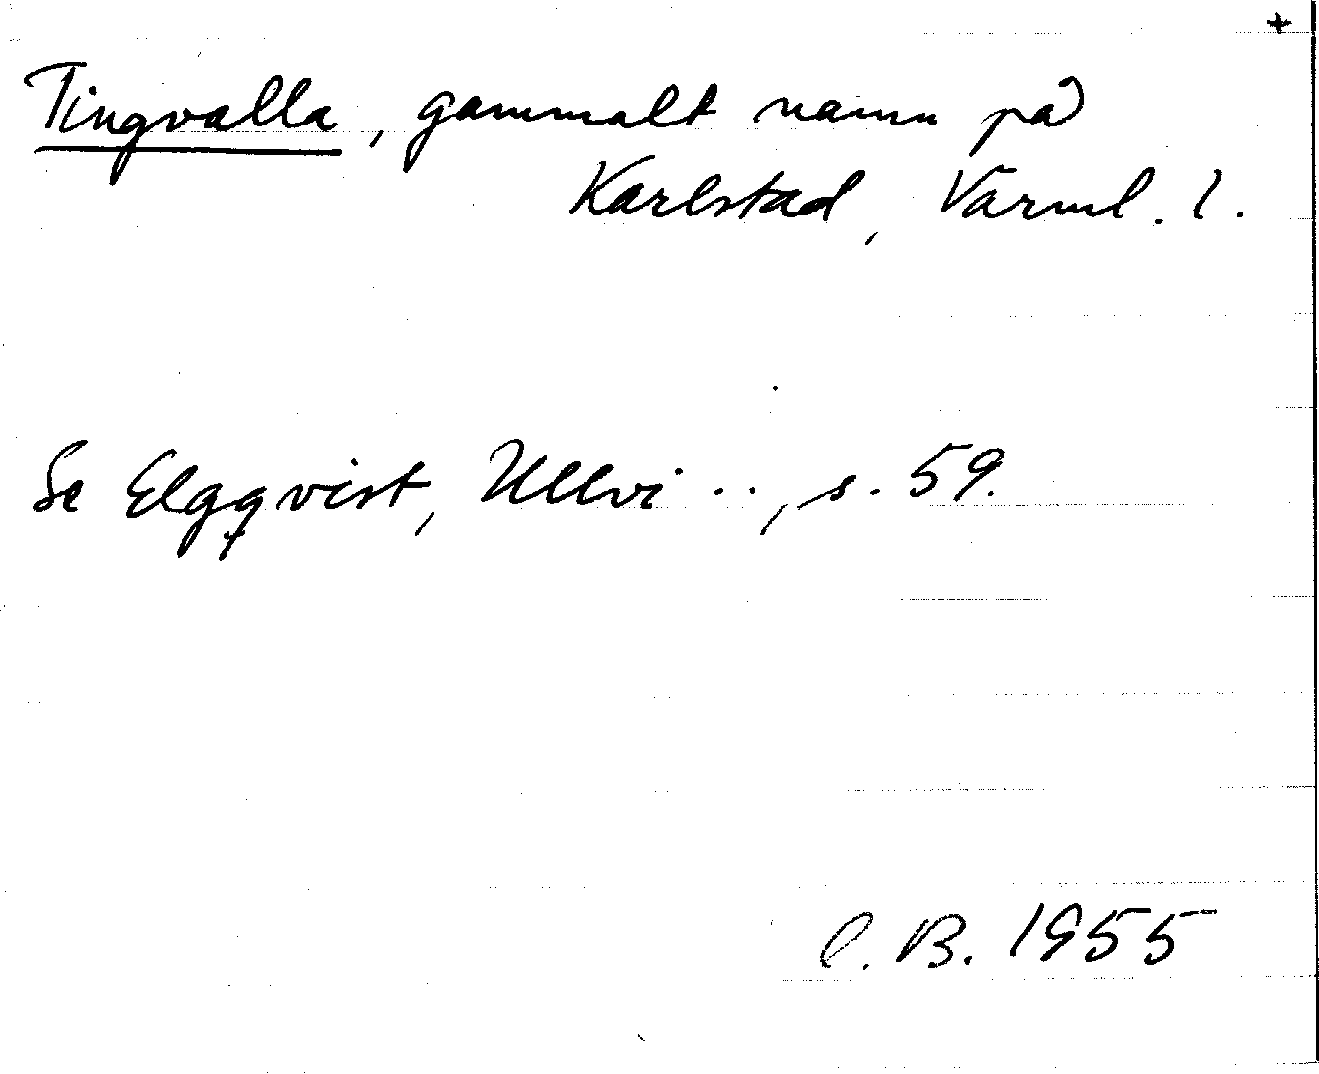 +
Tingvalla, gammalt namn på
Karlstad, Värml. l.
Se Elgqvist, Ullvi .., s. 59.
C. B. 1955